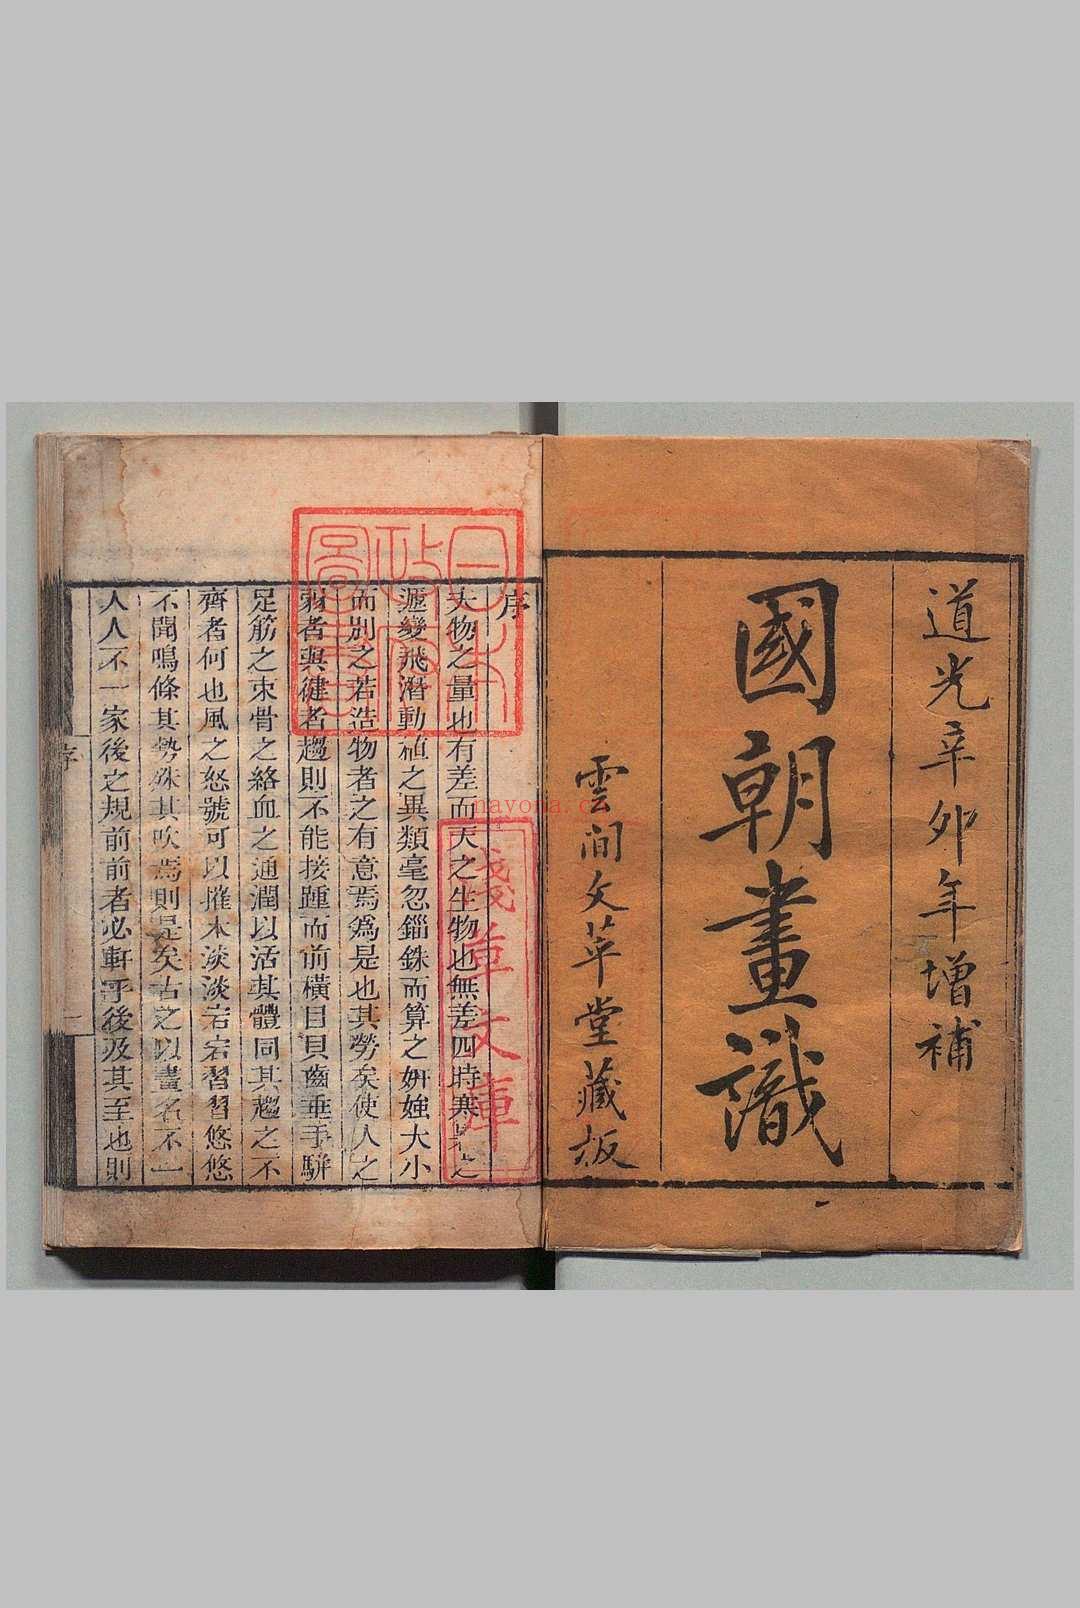 道光辛卯年增補
國朝畫識
雲間文萃堂藏板
序
夫物之量也有差而天之生物也無差四時寒暑之
遞變飛潛動植之異類毫忽錙銖而算之妍媸大小
而別之若造物者之有意焉爲是也其勞矣使人之
弱者與健者趨則不能接踵而前橫目貝齒垂手駢
足筋之束骨之絡血之通潤以活其體同其趨之不
齊者何也風之怒號可以摧木淡淡宕宕習習悠悠
不聞鳴條其勢殊其吹焉則是矣古之以畫名不一
人人不一家後之規前前者必軒乎後及其至也則
序
一
日本
政府
圖書
淺草文庫
navona.c